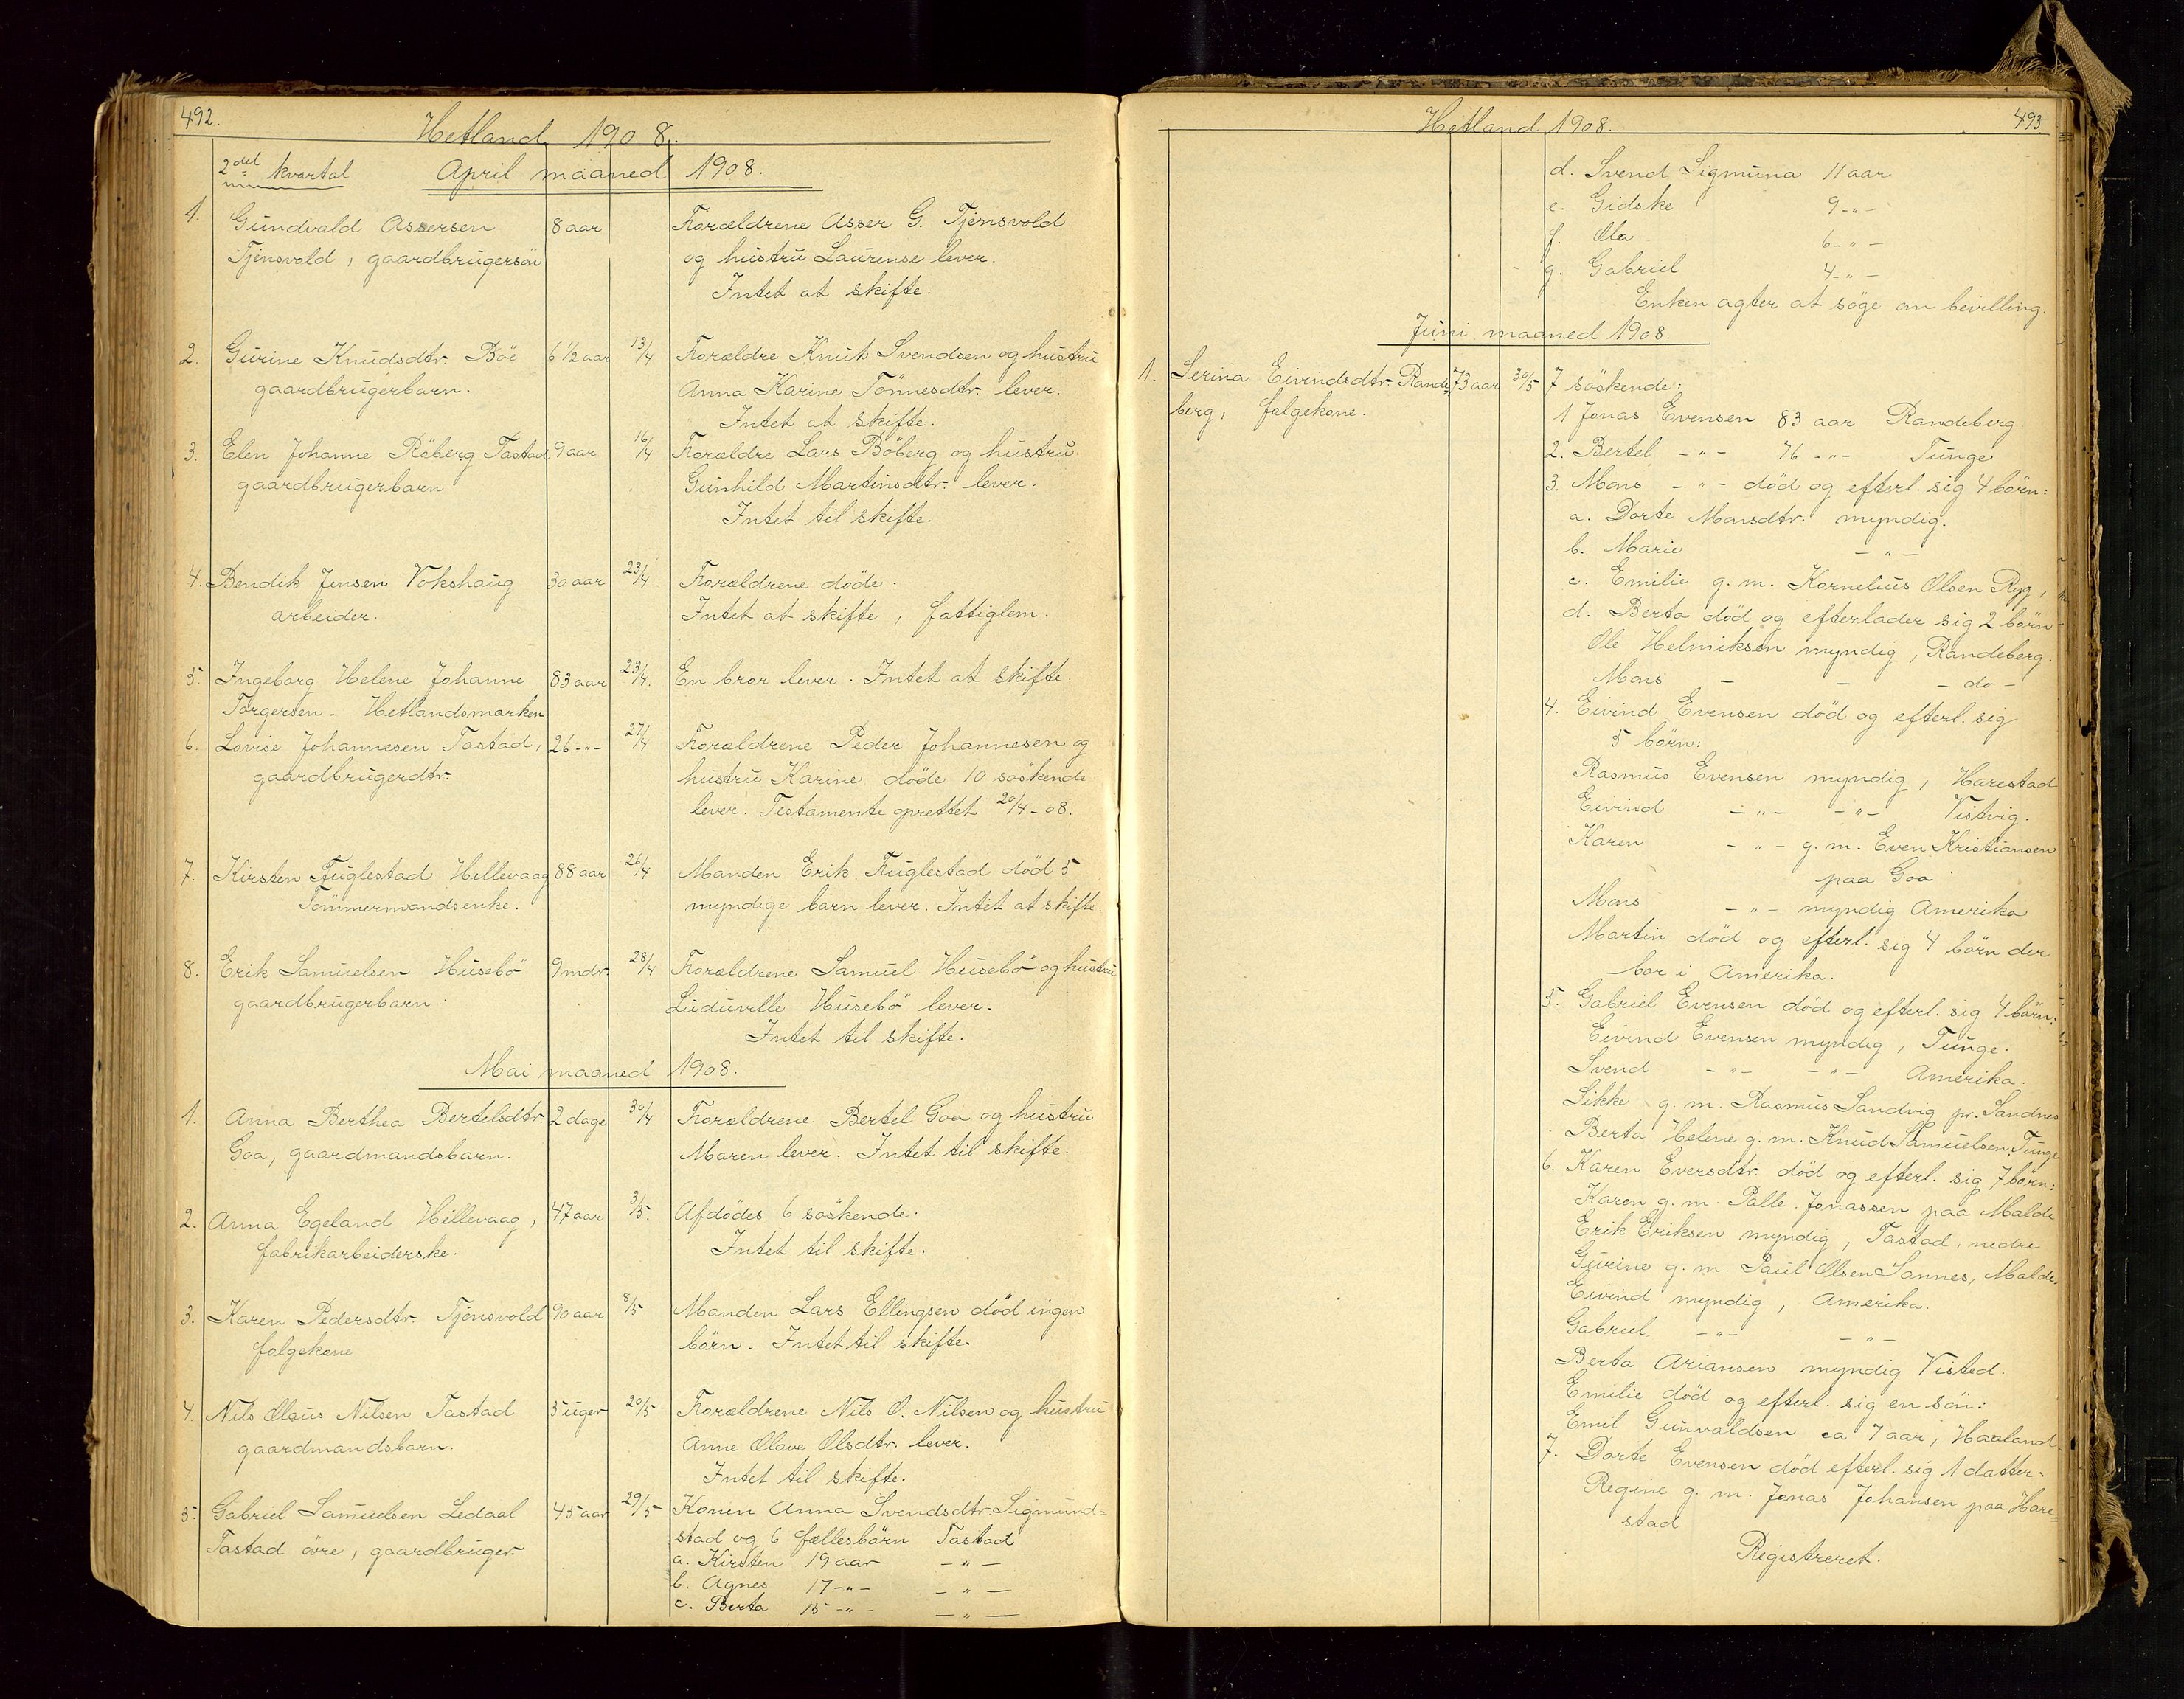 492.
Hetland 1908.
2det kvartal April maaned 1908.
1. Gundvald Assersen 8 aar Forældrene Asser G. Tjensvold
Tjensvold, gaardbrugersön og hustru Laurense lever.
Intet at skifte.
2. Gurine Knudsdtr. Böe 6 1/2 aar 13/4 Forældre Knut Svendsen og hustru
gaardbrugerbarn. Anna Karine Tönnesdtr. lever.
Intet at skifte.
3. Elen Johanne Röberg Tastad 9 aar 16/4 Forældre Lars Böberg og hustru
gaardbrugerbarn Gunhild Martinsdtr. lever.
Intet til skifte.
4. Bendik Jensen Vokshaug 30 aar 23/4 Forældrene döde.
arbeider. Intet at skifte, fattiglem.
5. Ingeborg Helene Johanne 83 aar 23/4. En bror lever. Intet at skifte.
Torgersen. Hetlandsmarken.
6. Lovise Johannesen Tastad, 26 -"- 27/4 Forældrene Peder Johannesen og
gaardbrugerdtr. hustru Karine döde 10 söskende
lever. Testamente oprettet 20/4-08.
7. Kirsten Fuglestad Hellevaag 88 aar 26/4 Manden Erik Fuglestad död 5
Tömmermandsenke. myndige barn lever. Intet at skifte.
8. Erik Samuelsen Husebö 9 mdr. 28/4 Forældrene Samuel Husebö og hustru
gaardbrugerbarn. Luduville Husebö lever.
Intet til skifte.
Mai maaned 1908.
1. Anna Berthea Bertelsdtr. 2 dage 30/4 Forældrene Bertel Goa og hustru
Goa, gaardmandsbarn. Maren lever. Intet til skifte.
2. Anna Egeland Hillevaag, 47 aar 3/5. Afdödes 6 söskende.
fabrikarbeiderske. Intet til skifte.
3. Karen Pedersdtr. Tjensvold 90 aar 8/5 Manden Lars Ellingsen död ingen
folgekone börn. Intet til skifte.
4. Nils Olaus Nilsen Tastad 5 uger 20/5 Forældrene Nils O. Nilsen og hustru
gaardmandsbarn. Anne Olave Olsdtr. lever.
Intet til skifte.
5. Gabriel Samuelsen Ledaal 45 aar 29/5 Konen Anna Svendsdtr. Sigmund=
Tastad övre, gaardbruger. stad og 6 fællesbörn Tastad
a. Kirsten 19 aar -"-
b. Agnes 17 -"- -"-
c. Berta 15 -"- -"-
Hetland 1908. 493
d. Svend Sigmuna 11 aar
e. Gidske 9 -"-
f. Ola 6 -"-
g. Gabriel 4 -"-
Enken agter at söge om bevilling.
Juni maaned 1908.
1. Serina Eivindsdtr. Rande= 73 aar 30/5 7 söskende:
berg, folgekone. 1 Jonas Evensen 83 aar Randeberg.
2. Bertel -"- 76 -"- Tunge
3. Mons -"- död og efterl. sig 4 börn:
a. Dorte Monsdtr. myndig.
b. Marie -"-
c. Emilie g. m. Kornelius Olsen Ryg,
d. Berta död og efterlader sig 2 börn
Ole Helmiksen myndig, Randeberg.
Mons - - - do -
4. Eivind Evensen död og efterl. sig
5 börn:
Rasmus Evensen myndig, Harestad
Eivind -"- -"- Vistvig.
Karen -"- g. m. Even Kristiansen
paa Goa
Mons -"- myndig Amerika
Martin död og efterl. sig 4 börn der
bor i Amerika.
5. Gabriel Evensen död og efterl. sig 4 börn:
Eivind Evensen myndig, Tunge.
Svend -"- -"- Amerika.
Sikke g. m. Rasmus Sandvig pr. Sandnes
Berta Helene g. m. Knud Samuelsen, Tunge
6. Karen Eversdtr död og efterl. sig 7 börn:
Karen g. m. Palle Jonassen paa Malde
Erik Eriksen myndig, Tastad, nedre
Gurine g. m. Paul Olsen Sannes, Malde.
Eivind myndig, Amerika.
Gabriel -"- -"-
Berta Ariansen myndig Visted.
Emilie död og efterl. sig en sön:
Emil Gunvaldsen ca 7 aar, Haaland
7. Dorte Evensen död efterl. sig 1 datter.
Regine g. m. Jonas Johansen paa Hare=
stad
Registreret.